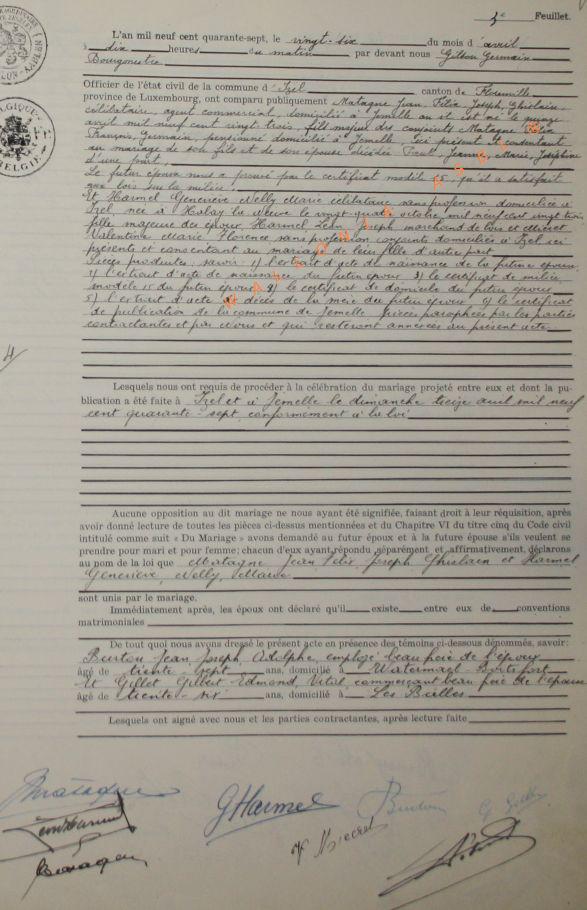 3e Feuillet.
L'an mil neuf cent quarante-sept, le vingt-six du mois d'avril
à dix heures du matin par devant nous Gillon Germain
Bourgmestre
Officier de l'état civil de la commune d'Izel canton de Florenville
province de Luxembourg, ont comparu publiquement Matagne Jean Félix Joseph, Ghislain
célibataire, agent commercial, domicilié à Jemelle où il est né le
avril mil neuf cent vingt trois, fils majeur des conjoints Matagne
François, Germain, pensionné domicilié à Jemelle, ici présent et consentant
au mariage de son fils et de son épouse décédée Jeanne, Marie, Joséphine
d'une part.
Le futur époux nous a prouvé par le certificat modèle 15 qu'il a satisfait
aux lois sur la milice
Et Harmel Geneviève Nelly Marie célibataire sans profession domiciliée à
Izel, née à Halay la Neuve le vingt quatre octobre mil neuf cent vingt trois
fille majeure des époux Harmel Léon Joseph marchand de bois et
Valentine Marie Florence sans profession conjoints domiciliés à Izel ici
présents et consentant au mariage de leur fille d'autre part
Pièces produites: savoir: 1) l'extrait d'acte de naissance de la future épouse
2) l'extrait d'acte de naissance du futur époux 3) le certificat de milice
modèle 15 du futur époux 4) le certificat de domicile du futur époux
5) l'extrait d'acte de décès de la mère du futur époux 6) le certificat
de publication de la commune de Jemelle pièces paraphées par les parties
contractantes et par Nous et qui resteront annexées au présent acte
4
Lesquels nous ont requis de procéder à la célébration du mariage projeté entre eux et dont la pu-
blication a été faite à Izel et à Jemelle le dimanche treize avril mil neuf
cent quarante-sept conformément à la loi
Aucune opposition au dit mariage ne nous ayant été signifiée, faisant droit à leur réquisition, après
avoir donné lecture de toutes les pièces ci-dessus mentionnées et du Chapitre VI du titre cinq du Code civil
intitulé comme suit « Du Mariage » avons demandé au futur époux et à la future épouse s'ils veulent se
prendre pour mari et pour femme; chacun d'eux ayant répondu séparément et affirmativement, déclarons
au nom de la loi que Matagne Jean Félix Joseph Ghislain et Harmel
Geneviève, Nelly, Marie
sont unis par le mariage.
Immédiatement après, les époux ont déclaré qu'il existe entre eux de conventions
matrimoniales
De tout quoi nous avons dressé le présent acte en présence des témoins ci-dessous dénommés, savoir:
Burton Jean Joseph, Adolphe, employé beau frère de l'époux
âgé de trente-sept ans, domicilié à Watermael-Boitsfort
Et Gillet Gilbert Edmond, Vital commerçant beau frère de l'épouse
âgé de trente-six ans, domicilié à Les Bulles
Lesquels ont signé avec nous et les parties contractantes, après lecture faite
Matagne
GHarmel
Burton
G Gillet
Léon Harmel